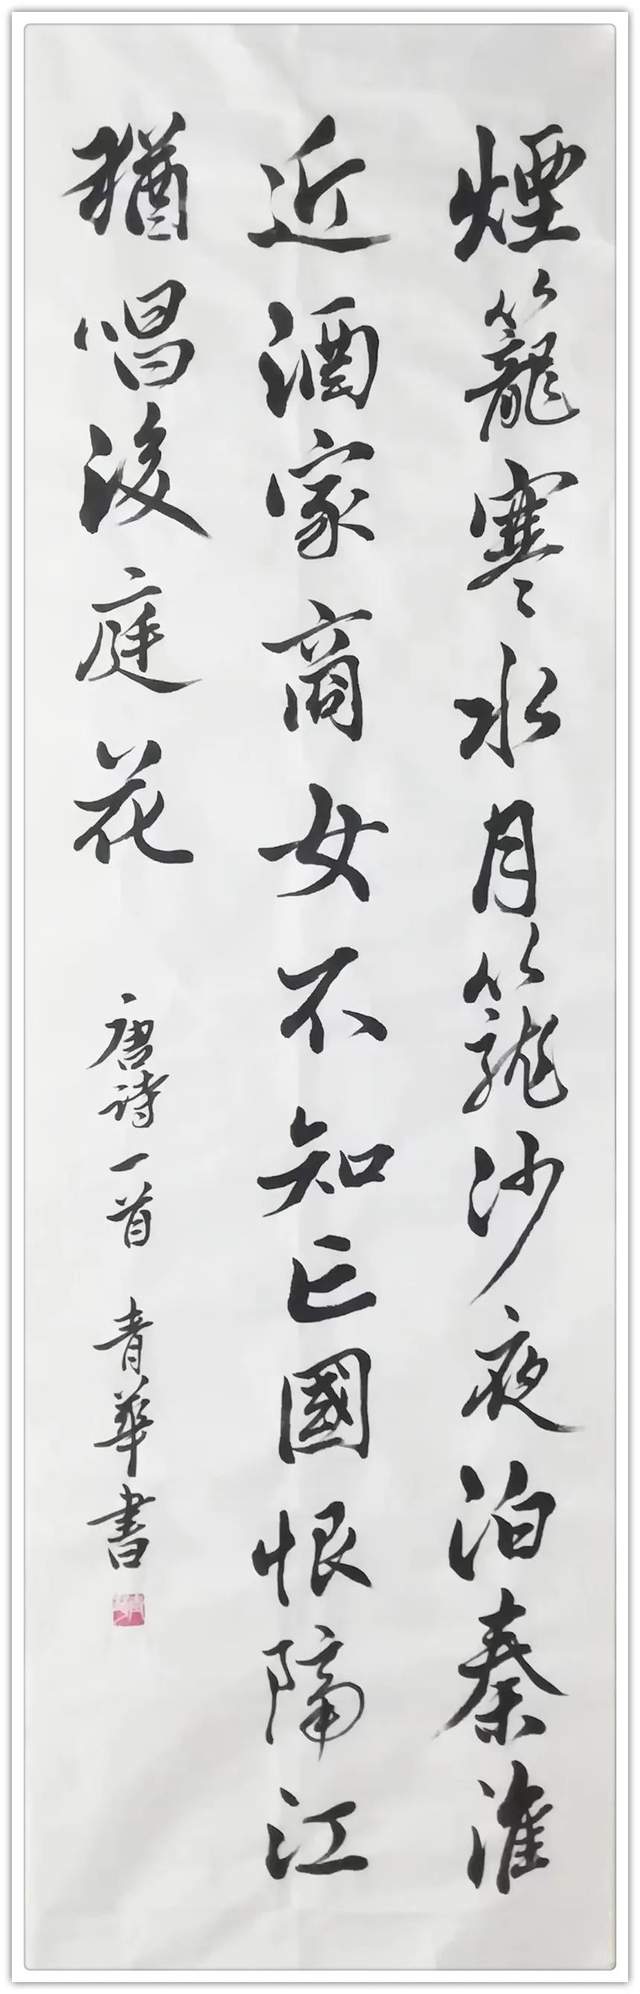 煙籠寒水月籠沙夜泊秦淮
近酒家商女不知亡國恨隔江
猶唱後庭花
唐诗一首 青華書